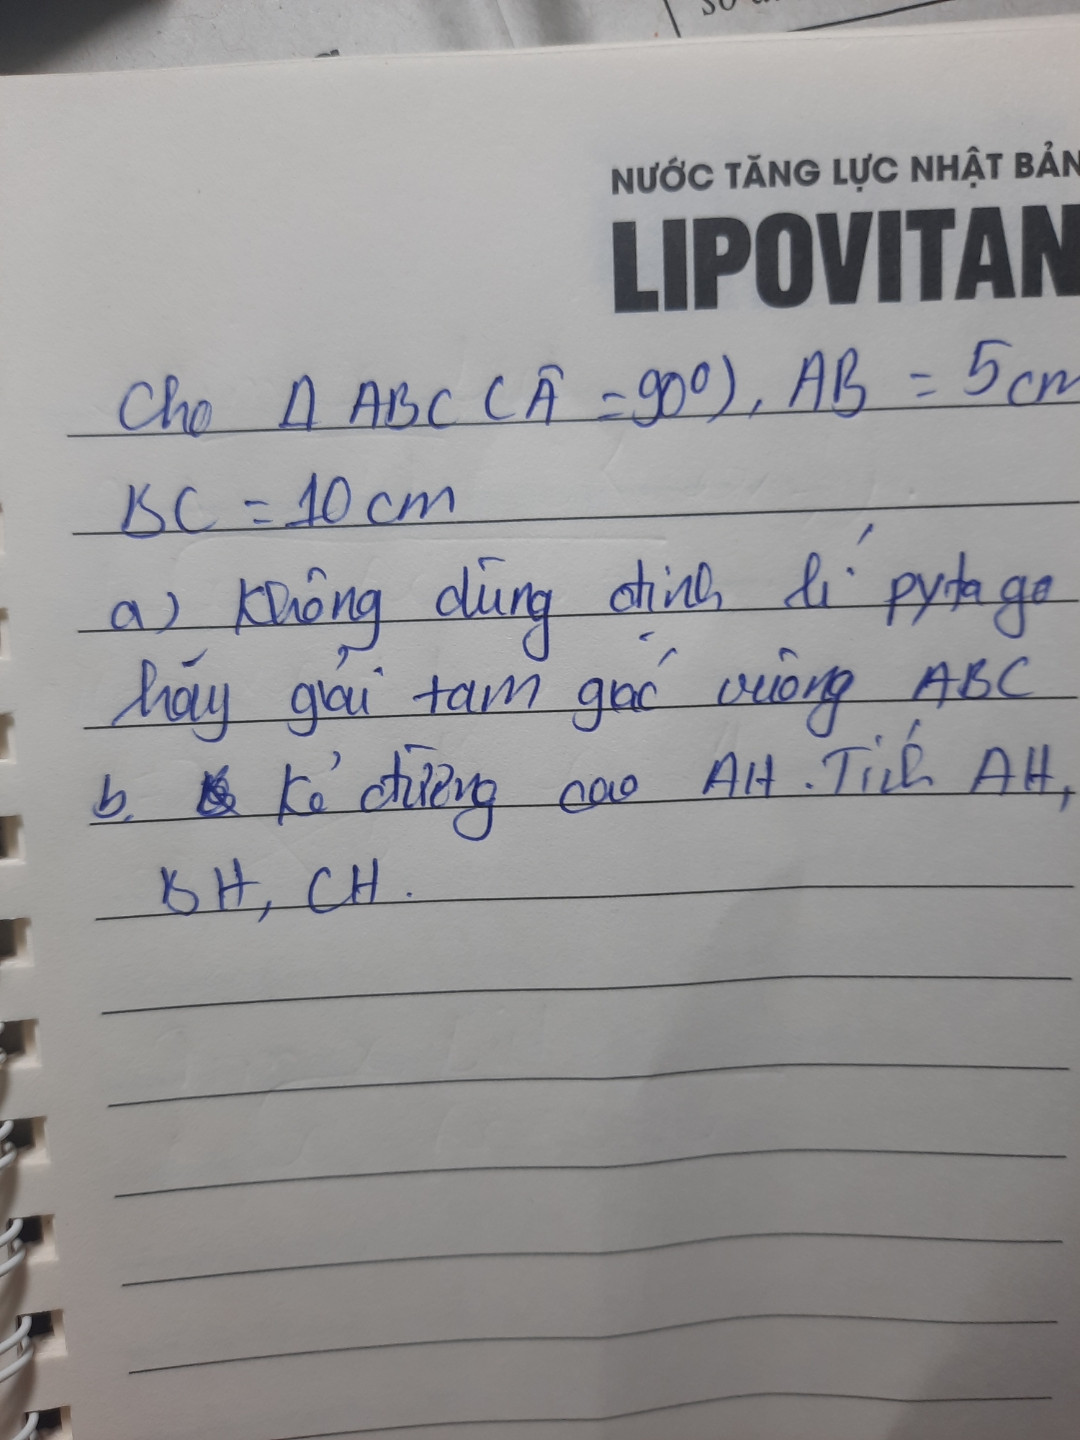 NƯỚC TĂNG LỰC NHẬT BẢN
LIPOVITAN
Cho Δ ABC (Â = 90⁰), AB = 5cm
BC = 10cm
a) Không dùng định lí pytago
hãy giải tam gác vuông ABC
b. Kẻ đường cao AH. Tính AH,
BH, CH.